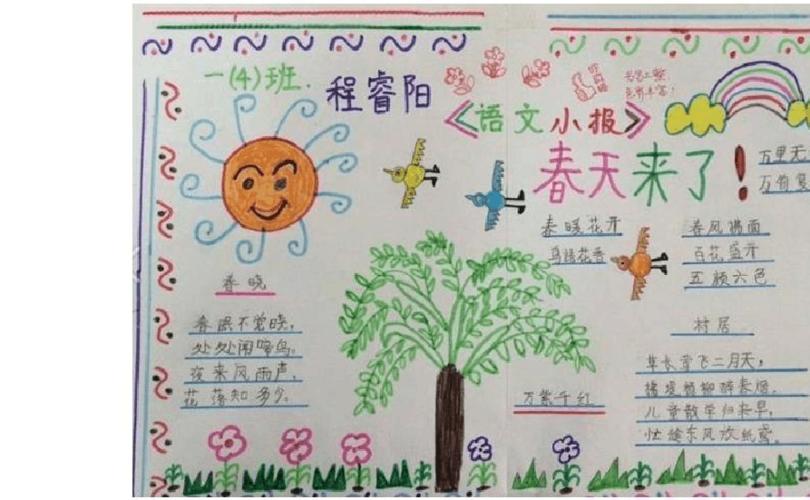 一(4)班.
程睿阳
《语文小报》
春天来了！
万里无
万
春暖花开
鸟语花香
春风拂面
百花盛开
五颜六色
春晓
春眠不觉晓,
处处闻啼鸟。
夜来风雨声,
花落知多少。
万紫千红
村居
草长莺飞二月天,
拂堤杨柳醉春烟。
儿童散学归来早,
忙趁东风放纸鸢。